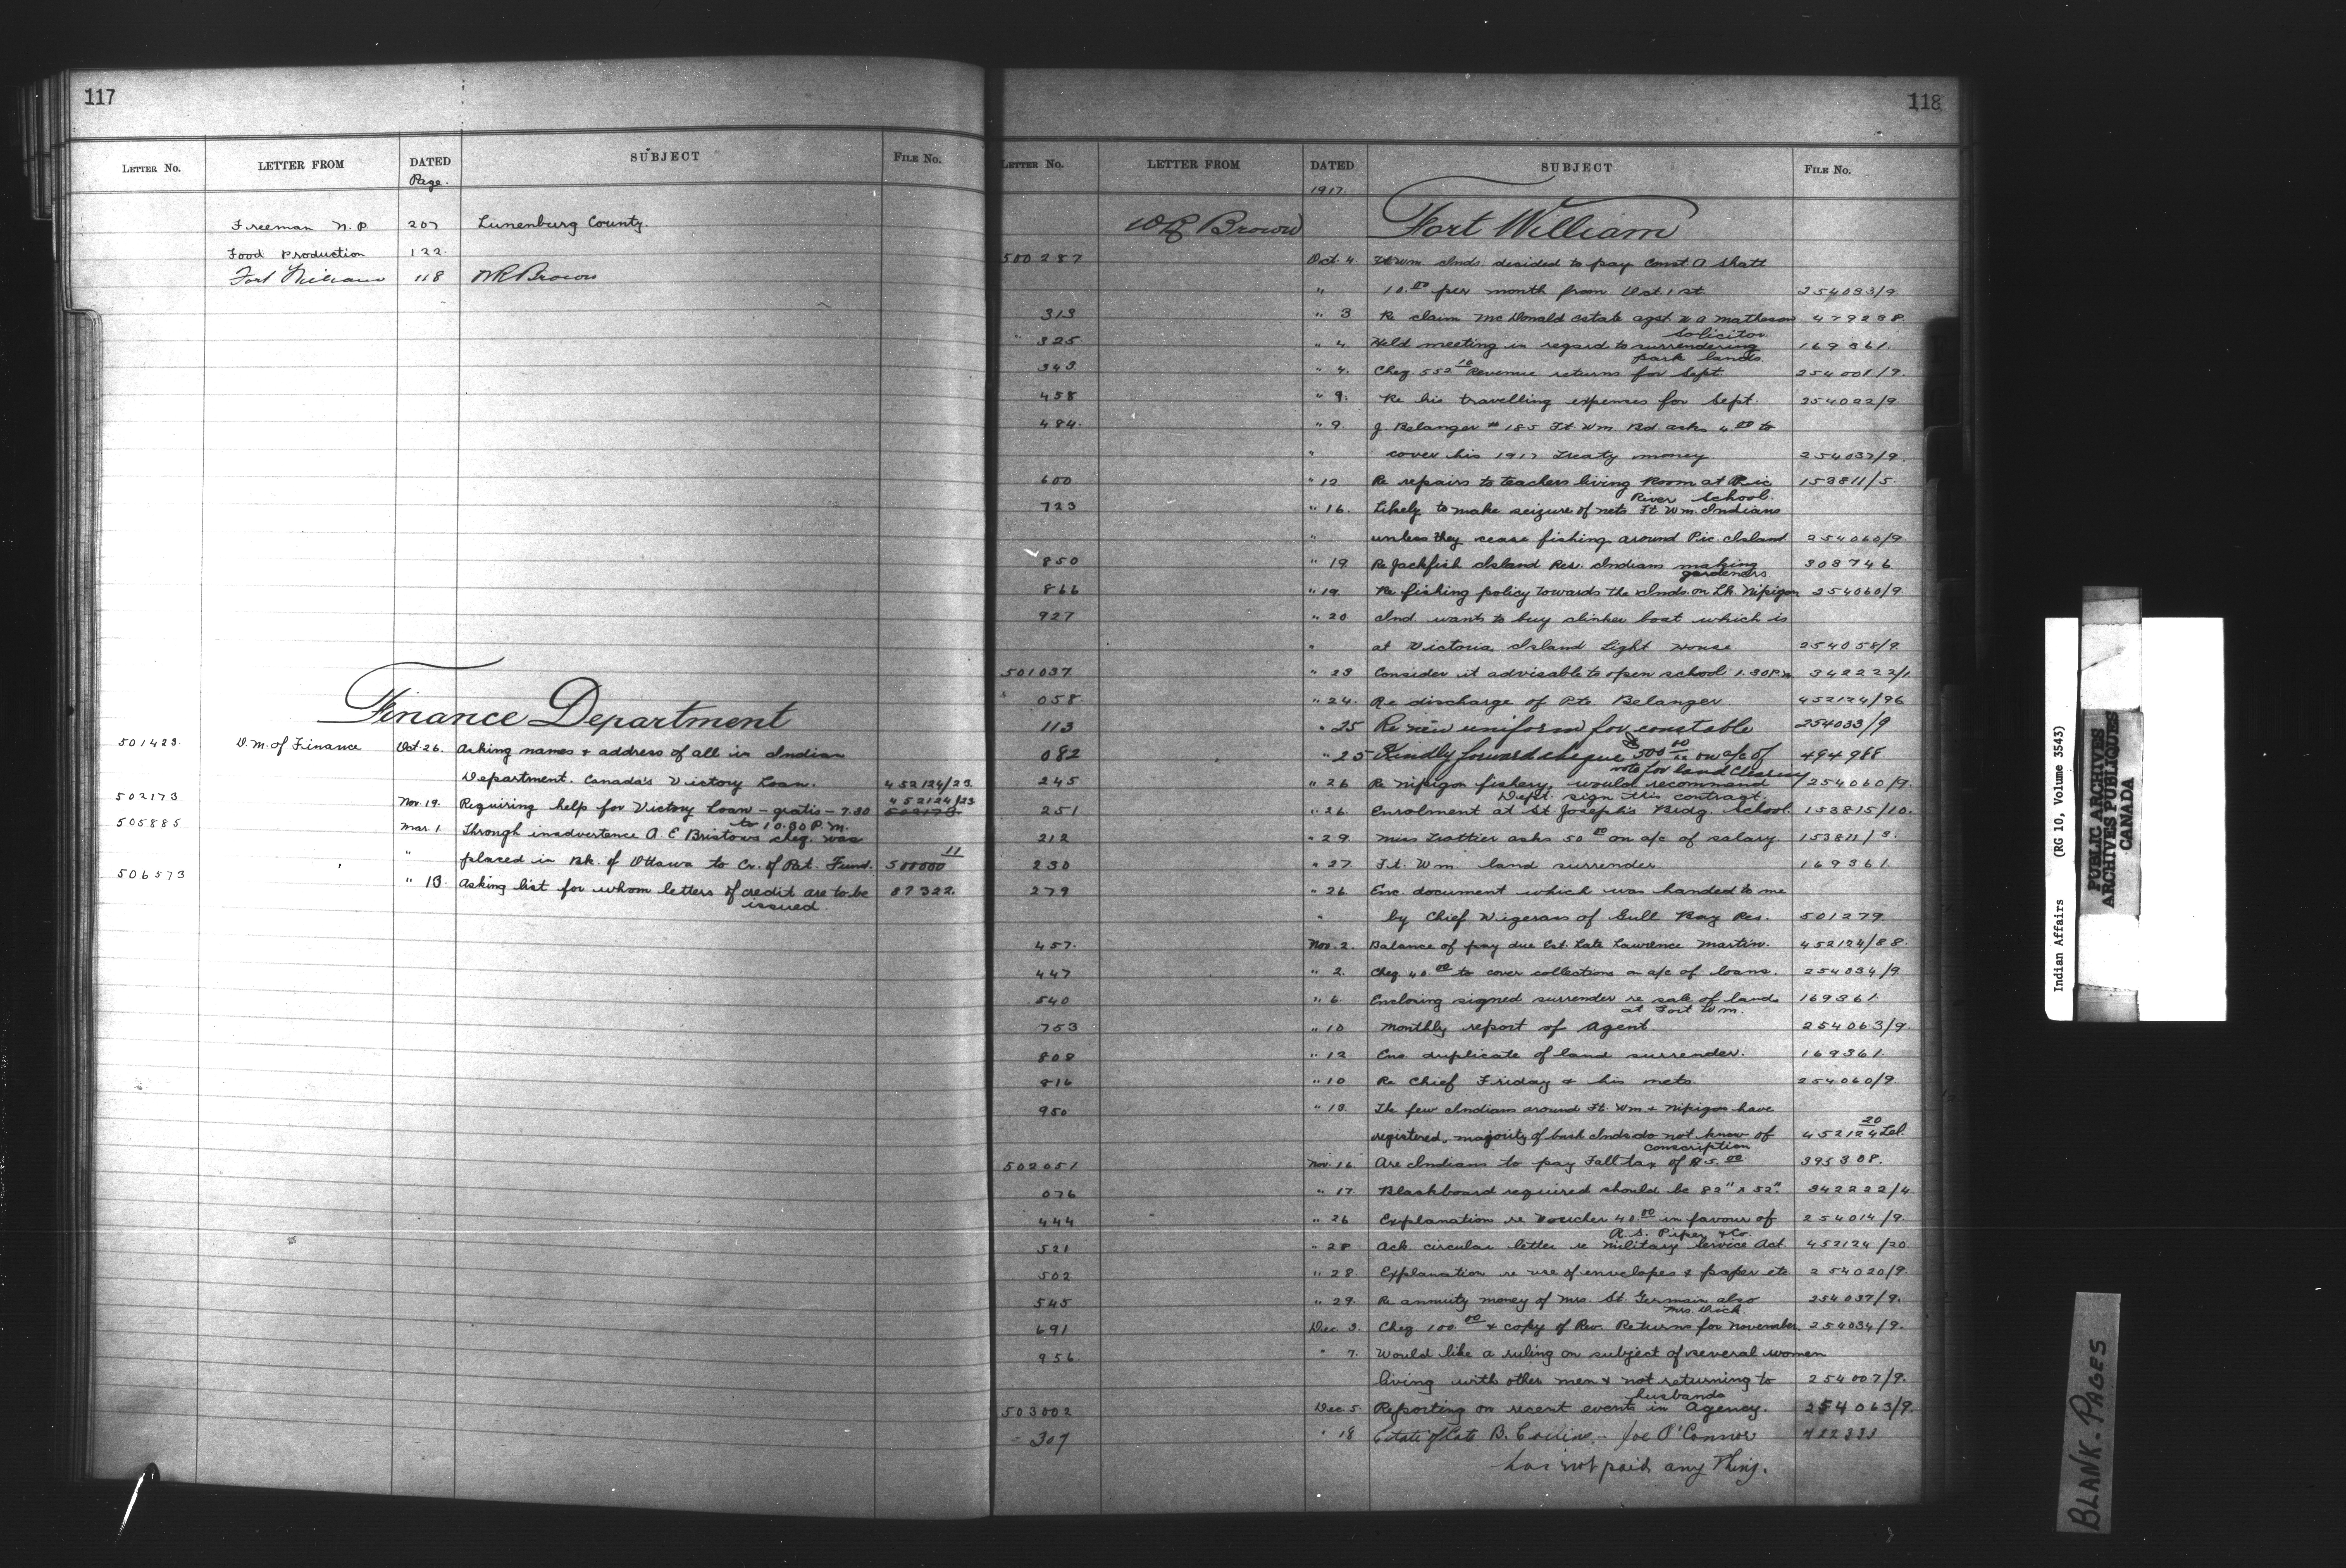 117
LETTER NO. LETTER FROM DATED SUBJECT FILE No.
Page.
Freeman N.P. 207 Lunenburg County.
Food Production 122.
Fort William 118 WR Brown
Finance Department
501423 D.M. of Finance Oct. 26. Asking names & address of all in Indian
Department. Canada's Victory Loan. 452124/23
502173 Nov. 19. Requiring help for Victory Loan - gratis - 7.30 452124/23
to 10.30 P.M. 502173
505885 Mar. 1. Through inadvertence A. E. Bristows cheq. was
" placed in Bk. of Ottawa to Cr. of Pat. Fund. 500000 11
506573 " 13. Asking list for whom letters of credit are to be 87322.
issued.
118
LETTER No. LETTER FROM DATED SUBJECT FILE No.
1917.
WR Brown Fort William
500287 Oct. 4. Ft. Wm. Inds. decided to pay Const. A Shatt
" 10.00 per month from Oct. 1st. 254033/9.
313 " 3 Re claim McDonald estate agst. matheson 479238.
solicitor
325 " 4 Held meeting in regard to surrendering 169361.
park lands.
343. " 4. Cheq 552 10 Revenue returns for Sept. 254008/9.
458 " 9. Re his travelling expenses for Sept. 254022/9
484. " 9. J. Belanger # 185 Ft. Wm. Bd. asks 4.00 to
" cover his 1917 Treaty money 254037/9.
600 " 12 Re repairs to teachers living Room at Pic 153811/5.
River School.
723 " 16. Likely to make seizure of nets Ft. Wm. Indians
" unless they cease fishing around Pic Island 254060/9
850 " 19 Re Jackfish Island Res. Indians making 308746
gardeners
866 " 19. Re fishing policy towards the Inds. on Lk. Nipigon 254060/9.
927 " 20 Ind wants to buy clinker boat which is
" at Victoria Island Light House 254058/9
501037. " 23 Consider it advisable to open school 1.30 P.M. 342222/1
058 " 24. Re discharge of Pte. Belanger 452124/96
113 " 25 Re new uniform for constable 254033/9
082 " 25 Kindly forward cheque 500.00 on a/c of 494988
note for land Clearing
245 " 26 Re Nipigon fishery, would recommend 254060/9.
Dept. sign this contract.
251. " 26. Enrolment at St Joseph's Bidg. School. 153815/10.
212 " 29. Miss Trottier asks 50.00 on a/c of salary. 153811/3.
230 " 27. Ft. Wm. land surrender 169361.
279 " 26 Enc. document which was handed to me
" by Chief Wigerass of Gull Bay Res. 501279
457. Nov. 2. Balance of pay due Est. Late Lawrence Martin. 452124/88.
447 " 2. Cheq 40.00 to cover collections on a/c of loans. 254034/9
540 " 6. Enclosing signed surrender re sale of lands 169361.
at Fort Wm.
753 " 10 Monthly report of Agent 254063/9.
808 " 12 Enc. duplicate of land surrender. 169361.
816 " 10 Re Chief Friday & his nets. 254060/9.
950 " 13. The few Indians around Ft. Wm. & Nipigon have
registered, majority of bush Inds do not know of 452124 20
conscription
502051 Nov. 16. Are Indians to pay Fall tax of $5.00 395308.
076 " 17 Blackboard required should be 82" x 52". 342222/4
444 " 26 Explanation re Voucher 40.00 in favour of 254014/9.
R. S. Piper & Co.
521 " 28 Ack. circular letter re Military Service Act. 452124/20
502 " 28. Explanation re use of envelopes & paper etc 254020/9.
545 " 29. Re annuity money of Mrs. St. Germain also 254037/9.
Mrs. Dick.
691 Dec. 3. Cheq 100.00 & copy of Rev. Returns for November. 254034/9.
956 " 7. Would like a ruling on subject of several women
living with other men & not returning to 254007/9.
husbands
503002 Dec 5. Reporting on recent events in Agency. 254063/9.
307 " 18 Estate of late B. Collins - Joe O'Connor 422333
has not paid any Thing.
Indian Affairs (RG 10, Volume 3543)
PUBLIC ARCHIVES
ARCHIVES PUBLIQUES
CANADA
BLANK. PAGES